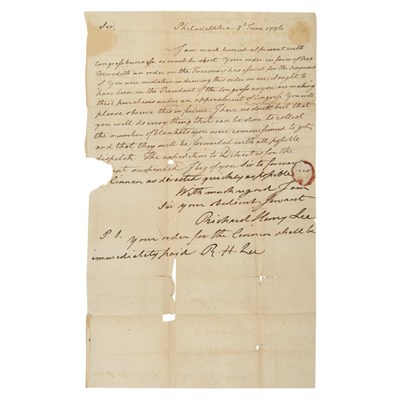 Sir, Philadelphia 3d June 1776
I am much hurried at present with
Congress business as much be short. Your order in favor of Mrs
Meredith an order on the Treasury has issued for the payment
of. You were mistaken in drawing this order in me it ought to
have been on the President of the Congress as you are making
these purchases under an appointment of Congress. You will
please observe this in future. I have no doubt but that
you will do every thing that can be done to collect
the number of blankets you were commissioned to get,
and that they will be forwarded with all possible
dispatch. The expedition to Detroit is for the
suspended. I beg of you Sir to forward
Linnen as directed quickly as possible
With much regard I am
Sir your obedient servant
Richard Henry Lee
P. S. your order for the Linnen shall be
immediately paid R. H. Lee